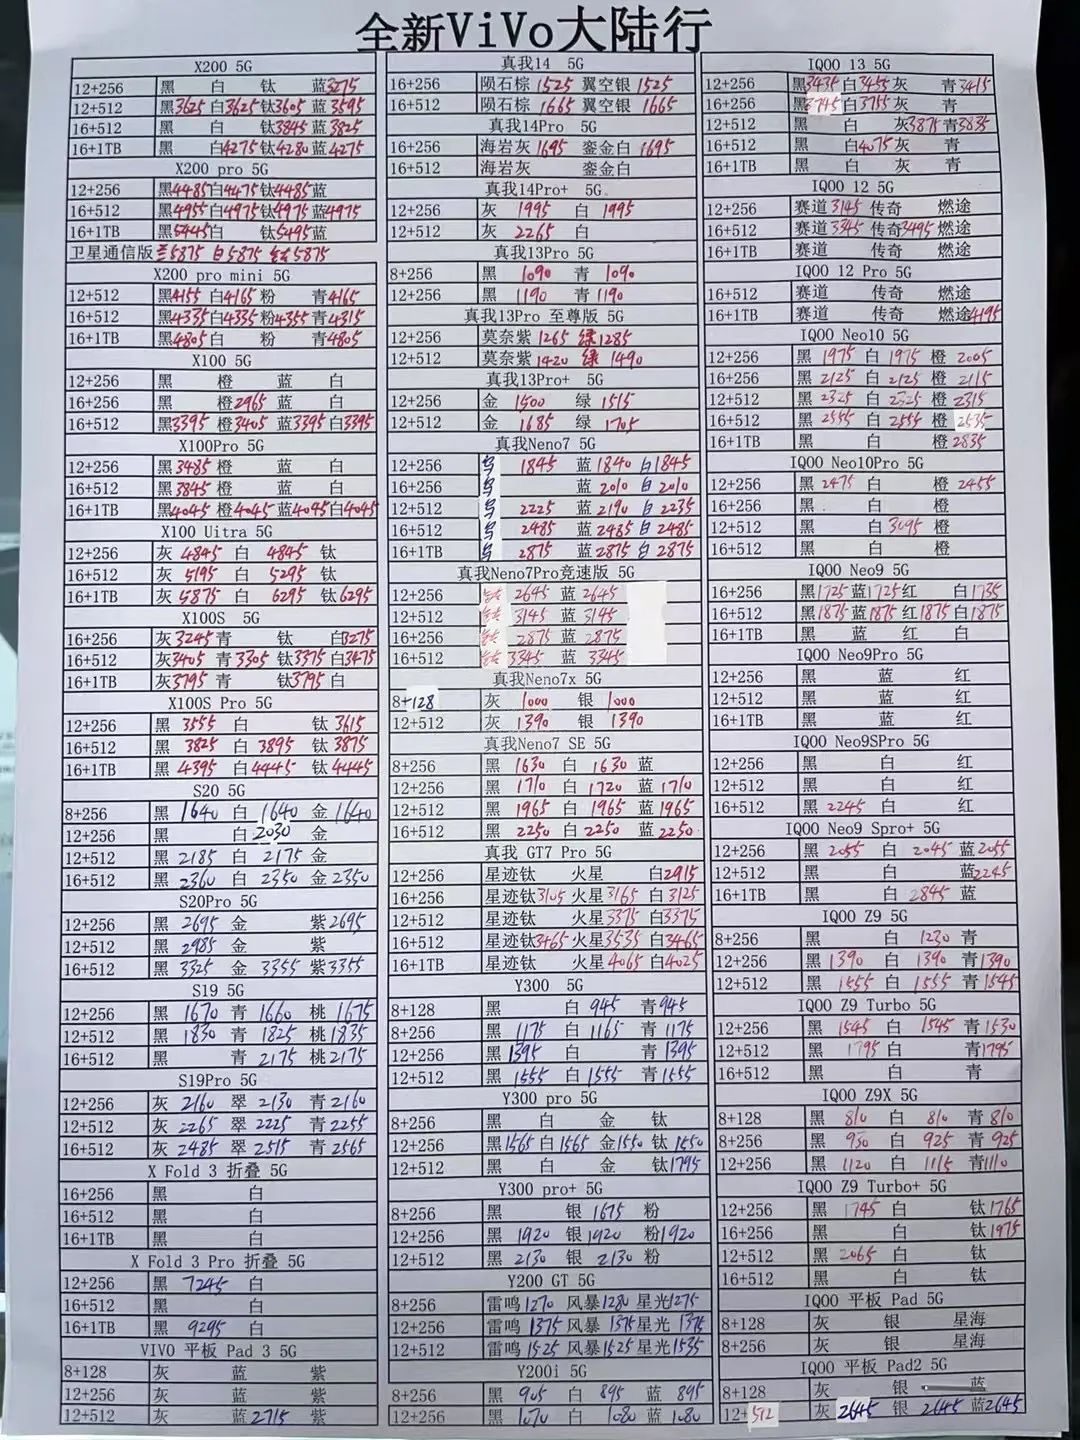 全新ViVo大陆行
X200 5G
12+256 黑 白 钛 蓝3275
12+512 黑3625 白3625 钛3605 蓝3595
16+512 黑 白 钛3845 蓝3825
16+1TB 黑 白4275 钛4280 蓝4275
X200 pro 5G
12+256 黑4485 白4475 钛4485 蓝
16+512 黑4955 白4975 钛4975 蓝4975
16+1TB 黑5445 白 钛5495 蓝
卫星通信版 5875 白5875 钛5875
X200 pro mini 5G
12+512 黑4155 白4165 粉 青4165
16+512 黑4335 白4335 粉4355 青4315
16+1TB 黑4805 白 粉 青4805
X100 5G
12+256 黑 橙 蓝 白
16+256 黑 橙2965 蓝 白
16+512 黑3395 橙3405 蓝3395 白3395
X100Pro 5G
12+256 黑3485 橙 蓝 白
16+512 黑3845 橙 蓝 白
16+1TB 黑4045 橙4045 蓝4045 白4045
X100 Uitra 5G
12+256 灰 4845 白 4845 钛
16+512 灰 5195 白 5295 钛
16+1TB 灰 5875 白 6295 钛6295
X100S 5G
16+256 灰3245 青 钛 白3275
16+512 灰3405 青 3305 钛3375 白3475
16+1TB 灰3795 青 钛3795 白
X100S Pro 5G
12+256 黑 3555 白 钛 3615
16+512 黑 3825 白 3895 钛 3875
16+1TB 黑 4395 白 4445 钛 4445
S20 5G
8+256 黑 1640 白 1640 金 1640
12+256 黑 白 2030 金
12+512 黑 2185 白 2175 金
16+512 黑 2360 白 2350 金 2350
S20Pro 5G
12+256 黑 2695 金 紫2695
12+512 黑 2985 金 紫
16+512 黑 3325 金 3355 紫3355
S19 5G
12+256 黑 1670 青 1660 桃 1675
12+512 黑 1830 青 1825 桃 1835
16+512 黑 青 2175 桃 2175
S19Pro 5G
12+256 灰 2160 翠 2130 青 2160
12+512 灰 2265 翠 2225 青 2255
16+512 灰 2485 翠 2515 青 2565
X Fold 3 折叠 5G
16+256 黑 白
16+512 黑 白
16+1TB 黑 白
X Fold 3 Pro 折叠 5G
12+256 黑 7245 白
16+512 黑 白
16+1TB 黑 9295 白
VIVO 平板 Pad 3 5G
8+128 灰 蓝 紫
12+256 灰 蓝 紫
12+512 灰 蓝2715 紫
真我14 5G
16+256 陨石棕 1525 翼空银 1525
16+512 陨石棕 1665 翼空银 1665
真我14Pro 5G
16+256 海岩灰 1695 銮金白 1695
16+512 海岩灰 銮金白
真我14Pro+ 5G
12+256 灰 1995 白 1995
12+512 灰 2265 白
真我13Pro 5G
8+256 黑 1090 青 1090
12+256 黑 1190 青 1190
真我13Pro 至尊版 5G
12+256 莫奈紫 1265 绿 1285
12+512 莫奈紫 1420 绿 1490
真我13Pro+ 5G
12+256 金 1500 绿 1515
12+512 金 1685 绿 1705
真我Neno7 5G
12+256 1845 蓝 1840 白1845
16+256 蓝 2010 白 2010
12+512 2225 蓝 2190 白 2235
16+512 2485 蓝 2485 白 2485
16+1TB 2875 蓝 2875 白 2875
真我Neno7Pro竞速版 5G
12+256 钛 2645 蓝 2645
12+512 钛 3145 蓝 3145
16+256 钛 2875 蓝 2875
16+512 钛 3345 蓝 3345
真我Neno7x 5G
8+128 灰 1000 银 1000
12+512 灰 1390 银 1390
真我Neno7 SE 5G
8+256 黑 1630 白 1630 蓝
12+256 黑 1710 白 1720 蓝 1710
12+512 黑 1965 白 1965 蓝 1965
16+512 黑 2250 白 2250 蓝 2250
真我 GT7 Pro 5G
12+256 星迹钛 火星 白2915
16+256 星迹钛3105 火星 3165 白 3125
12+512 星迹钛 火星 3375 白3375
16+512 星迹钛3465 火星3535 白3465
16+1TB 星迹钛 火星 4065 白4025
Y300 5G
8+128 黑 白 945 青945
8+256 黑 1175 白 1165 青 1175
12+256 黑 1395 白 青 1395
12+512 黑 1555 白 1555 青 1555
Y300 pro 5G
8+256 黑 白 金 钛
12+256 黑1565 白 1565 金1550 钛 1550
12+512 黑 白 金 钛1795
Y300 pro+ 5G
8+256 黑 银 1675 粉
12+256 黑 1920 银 1920 粉1920
12+512 黑 2130 银 2130 粉
Y200 GT 5G
8+256 雷鸣 1270 风暴1280 星光1275
12+256 雷鸣 1375 风暴 1375 星光 1375
12+512 雷鸣 1525 风暴1525 星光1535
Y200i 5G
8+256 黑 905 白 895 蓝 895
12+256 黑 1070 白 1080 蓝 1080
IQOO 13 5G
12+256 黑3435 白3455 灰 青3415
16+256 黑3745 白3755 灰 青
12+512 黑 白 灰3875 青3835
16+512 黑 白4075 灰 青
16+1TB 黑 白 灰 青
IQOO 12 5G
12+256 赛道 3145 传奇 燃途
16+512 赛道 3345 传奇3495 燃途
16+1TB 赛道 传奇 燃途
IQOO 12 Pro 5G
16+512 赛道 传奇 燃途
16+1TB 赛道 传奇 燃途4195
IQOO Neo10 5G
12+256 黑 1975 白 1975 橙 2005
16+256 黑 2125 白 2125 橙 2115
12+512 黑 2325 白 2325 橙 2315
16+512 黑 2555 白 2555 橙 2535
16+1TB 黑 白 橙 2835
IQOO Neo10Pro 5G
12+256 黑 2475 白 橙 2455
16+256 黑 白 橙
12+512 黑 白 3095 橙
16+512 黑 白 橙
IQOO Neo9 5G
16+256 黑1725 蓝1725 红 白 1735
16+512 黑1875 蓝1875 红1875 白1875
16+1TB 黑 蓝 红 白
IQOO Neo9Pro 5G
12+256 黑 蓝 红
12+512 黑 蓝 红
16+1TB 黑 蓝 红
IQOO Neo9SPro 5G
12+256 黑 白 红
12+512 黑 白 红
16+512 黑 2245 白 红
IQOO Neo9 Spro+ 5G
12+256 黑 2055 白 2045 蓝 2055
12+512 黑 白 蓝2245
16+1TB 黑 白 2845 蓝
IQOO Z9 5G
8+256 黑 白 1230 青
12+256 黑 1390 白 1390 青1390
12+512 黑 1555 白 1555 青 1545
IQOO Z9 Turbo 5G
12+256 黑 1545 白 1545 青 1530
12+512 黑 1795 白 青1795
16+512 黑 白 青
IQOO Z9X 5G
8+128 黑 810 白 810 青 810
8+256 黑 930 白 925 青 925
12+256 黑 1120 白 1115 青1110
IQOO Z9 Turbo+ 5G
12+256 黑 1745 白 钛 1765
16+256 黑 白 钛1975
12+512 黑 2065 白 钛
16+512 黑 白 钛
IQOO 平板 Pad 5G
8+128 灰 银 星海
8+256 灰 银 星海
IQOO 平板 Pad2 5G
8+128 灰 银 蓝
12+512 灰 2645 银 2645 蓝2645